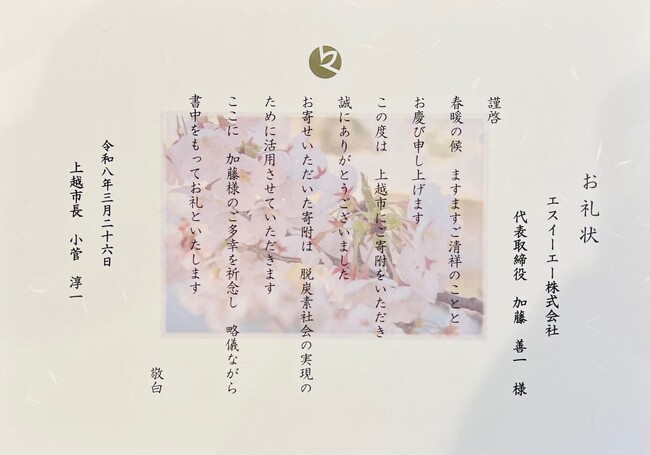 お礼状
エスイーエー株式会社
代表取締役 加藤 善一 様
謹啓
春暖の候 ますますご清祥のことと
お慶び申し上げます
この度は 上越市にご寄附をいただき
誠にありがとうございました
お寄せいただいた寄附は 脱炭素社会の実現の
ために活用させていただきます
ここに 加藤様のご多幸を祈念し 略儀ながら
書中をもってお礼といたします
敬白
令和八年三月二十六日
上越市長 小菅 淳一